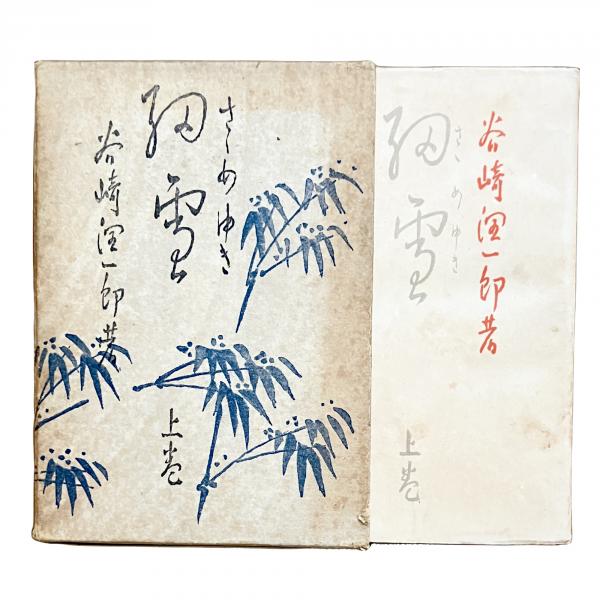 細雪
さゝめゆき
谷崎潤一郎著
上巻
谷崎潤一郎著
細雪
さゝめゆき
上巻